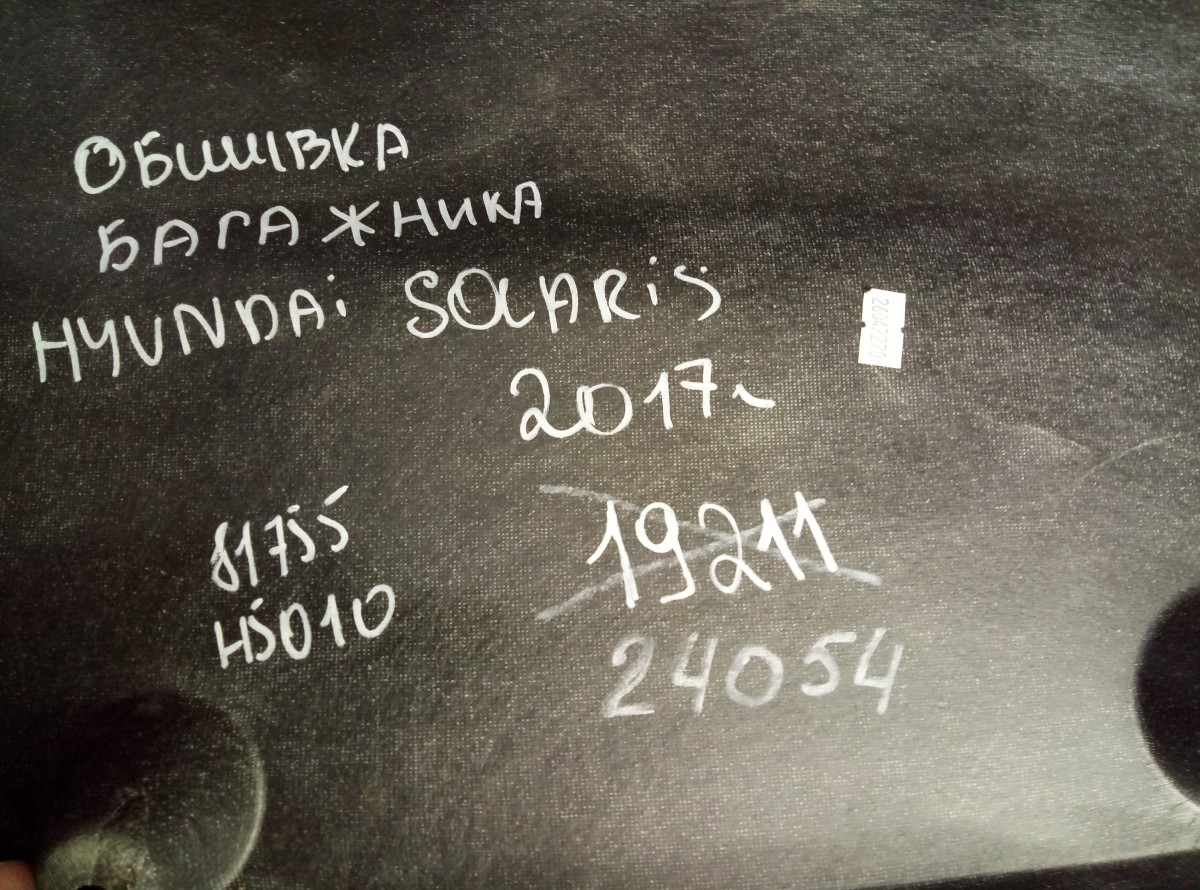 ОБШИВКА
БАГАЖНИКА
HYUNDAi SOLARiS
2017г
26047270
81755
H5010
19211
24054